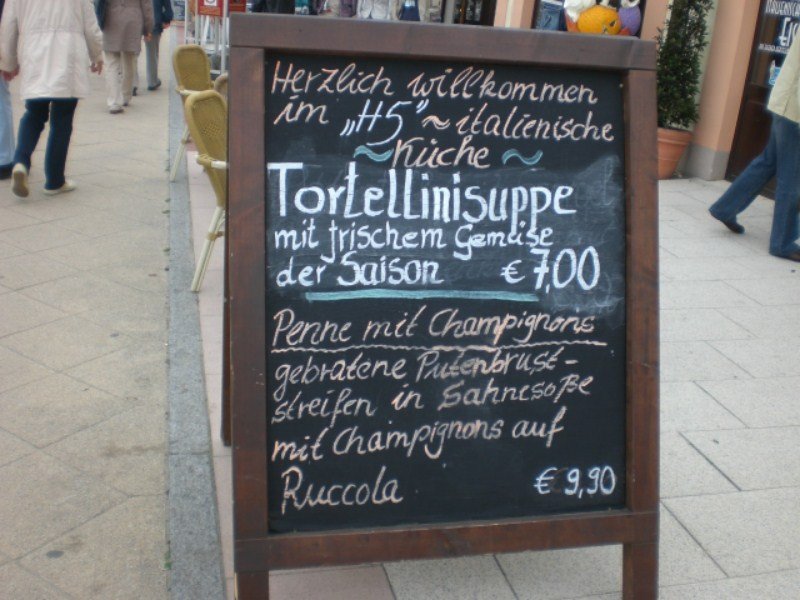 Herzlich willkommen
im „H5" ~ italienische
~ Küche ~
Tortellinisuppe
mit frischem Gemüse
der Saison € 7,00
Penne mit Champignons
gebratene Putenbrust-
streifen in Sahnesoße
mit Champignons auf
Ruccola € 9,90